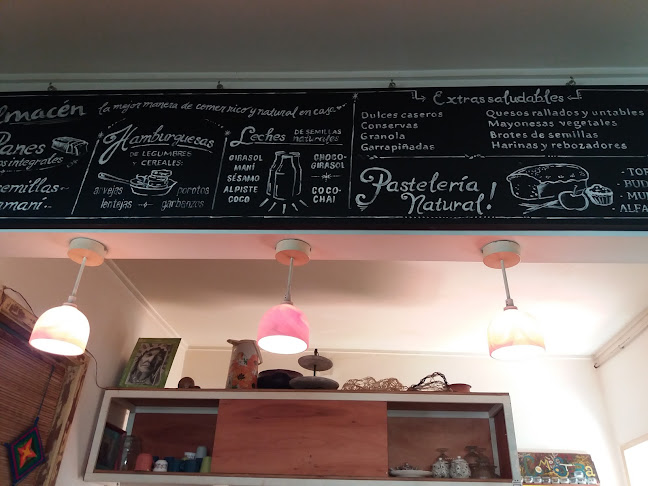 lmacén
la mejor manera de comer rico y natural en casa
Panes
os integrales
semillas
maní
Hamburguesas
DE LEGUMBRES Y CEREALES:
arvejas
porotos
lentejas
garbanzos
Leches DE SEMILLAS naturales
GIRASOL
MANÍ
SÉSAMO
ALPISTE
COCO
CHOCO-
GIRASOL
COCO-
CHAI
Extras saludables
Dulces caseros
Conservas
Granola
Garrapiñadas
Quesos rallados y untables
Mayonesas vegetales
Brotes de semillas
Harinas y rebozadores
Pastelería
Natural!
- TOR
- BUD
- MU
- ALFA